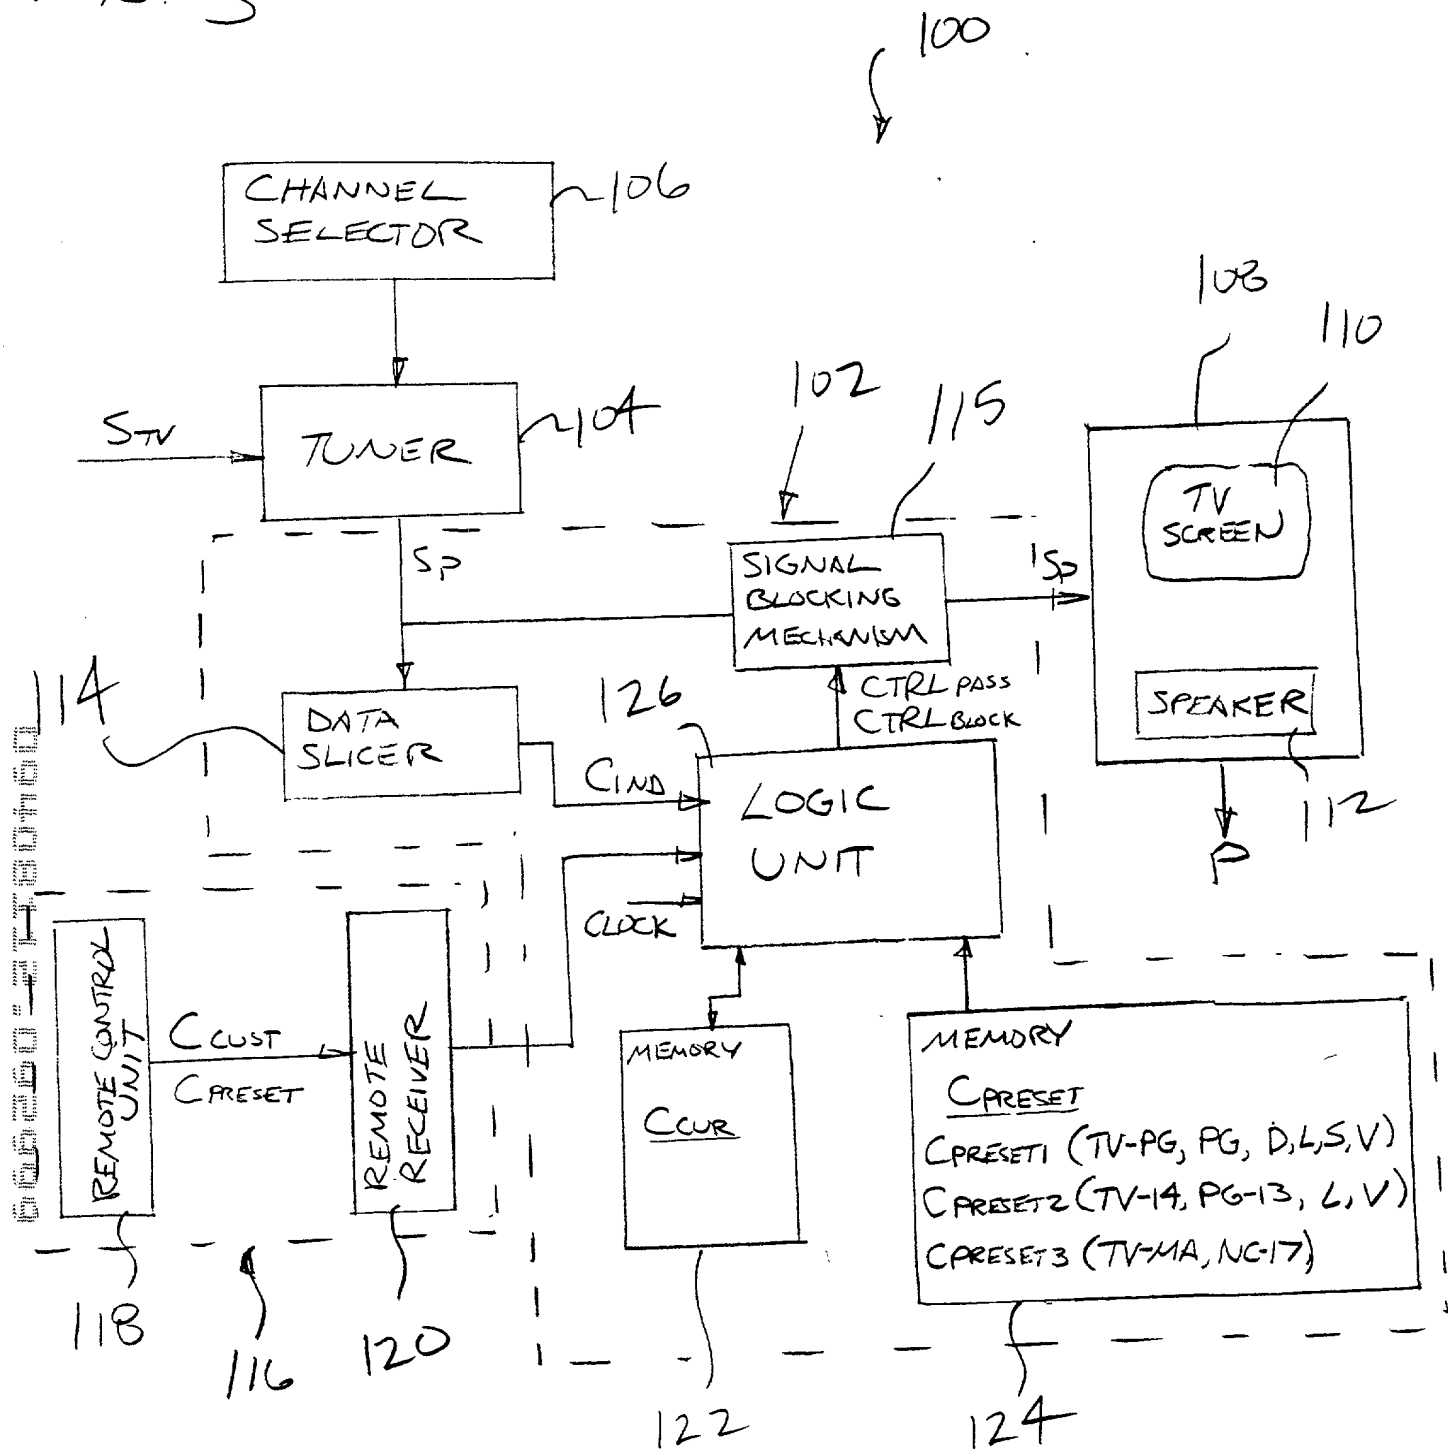 100
CHANNEL
SELECTOR
106
108
110
STV
TUNER
104
102
115
TV
SCREEN
SP
SIGNAL
BLOCKING
MECHANISM
SP
SPEAKER
112
P
114
DATA
SLICER
126
CTRL PASS
CTRL BLOCK
CIND
LOGIC
UNIT
CLOCK
REMOTE CONTROL
UNIT
CCUST
CPRESET
REMOTE
RECEIVER
MEMORY
CCUR
MEMORY
CPRESET
CPRESET1 (TV-PG, PG, D,L,S,V)
CPRESET2 (TV-14, PG-13, L,V)
CPRESET3 (TV-MA, NC-17)
118
116
120
122
124